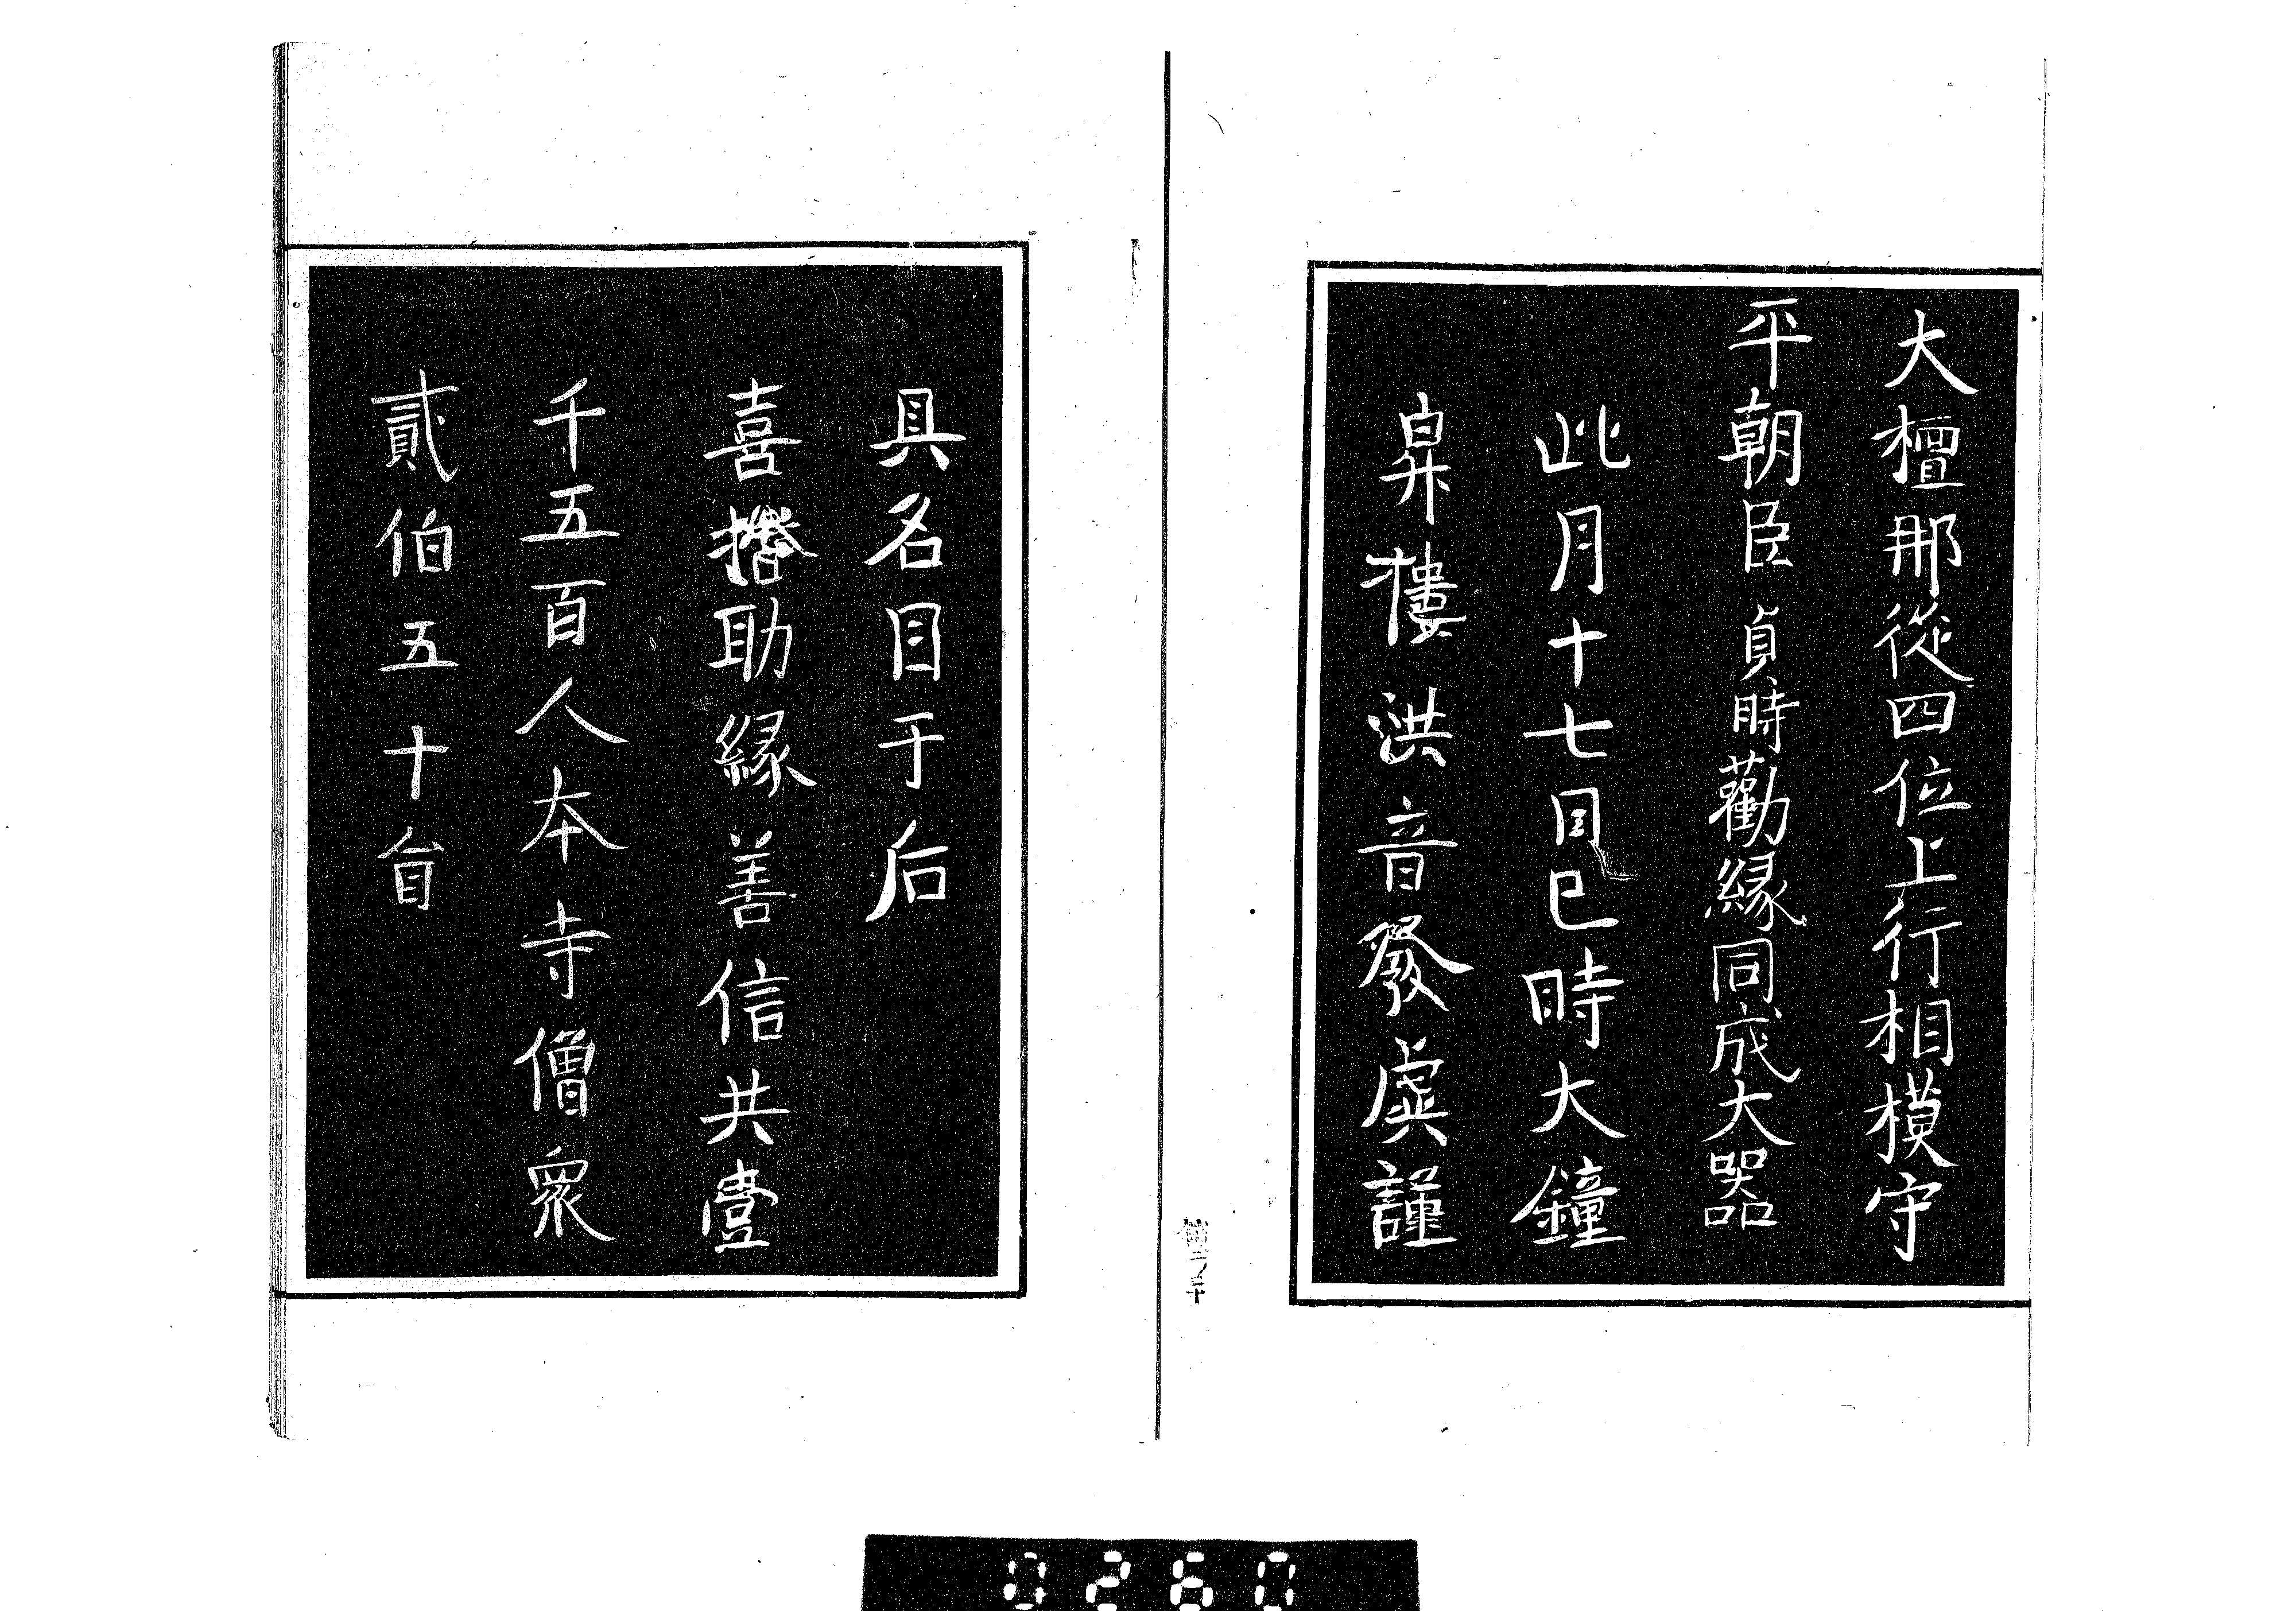 大檀那從四位上行相模守
平朝臣貞時勸緣同成大器
此月十七日巳時大鐘
昇樓洪音發虞謹
具名目于后
喜捨助緣善信共壹
千五百人本寺僧衆
貳伯五十員
0260